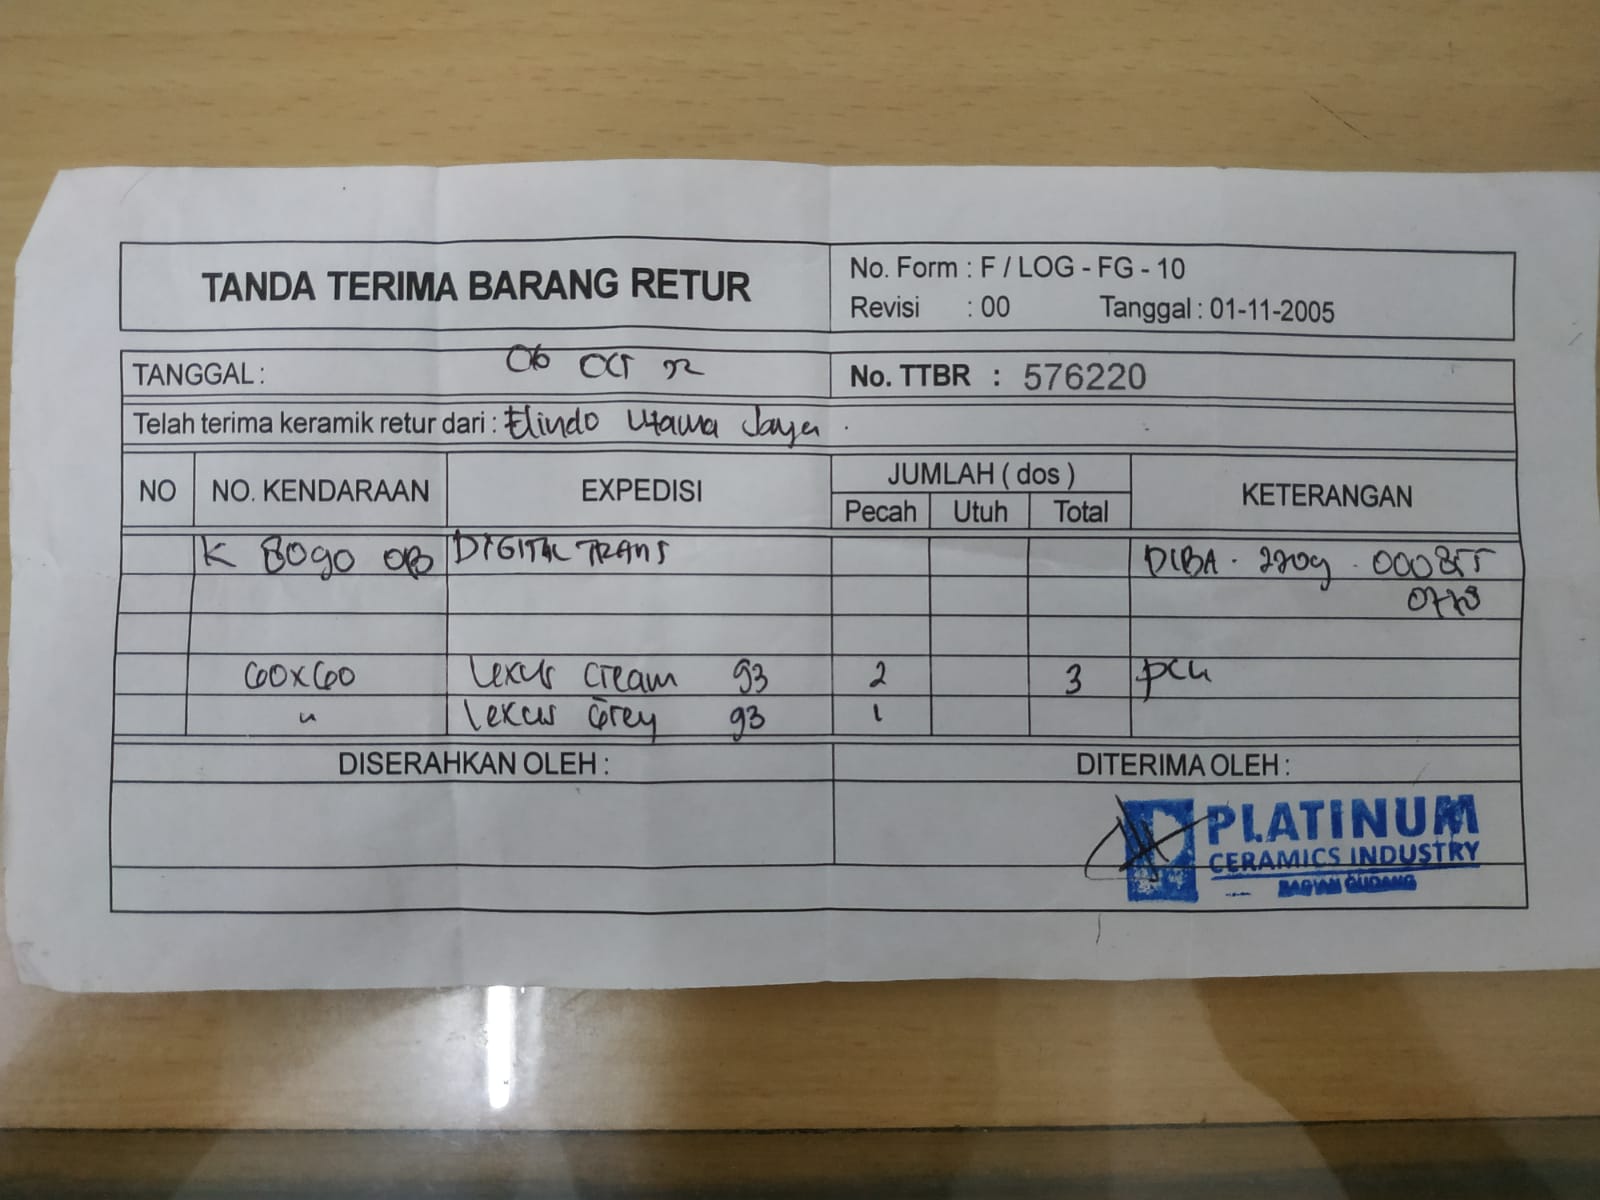 TANDA TERIMA BARANG RETUR
No. Form : F / LOG - FG - 10
Revisi : 00 Tanggal : 01-11-2005
TANGGAL : 06 OCT 22
No. TTBR : 576220
Telah terima keramik retur dari : Elindo Utama Jaya .
NO NO. KENDARAAN EXPEDISI JUMLAH ( dos ) KETERANGAN
Pecah Utuh Total
K 8090 OB DIGITAL TRANS DIBA . 2209 . 000855
0778
60x60 Lexus Cream 93 2 3 pcu
" Lexus Grey 93 1
DISERAHKAN OLEH : DITERIMA OLEH :
PLATINUM
CERAMICS INDUSTRY
BAGIAN GUDANG